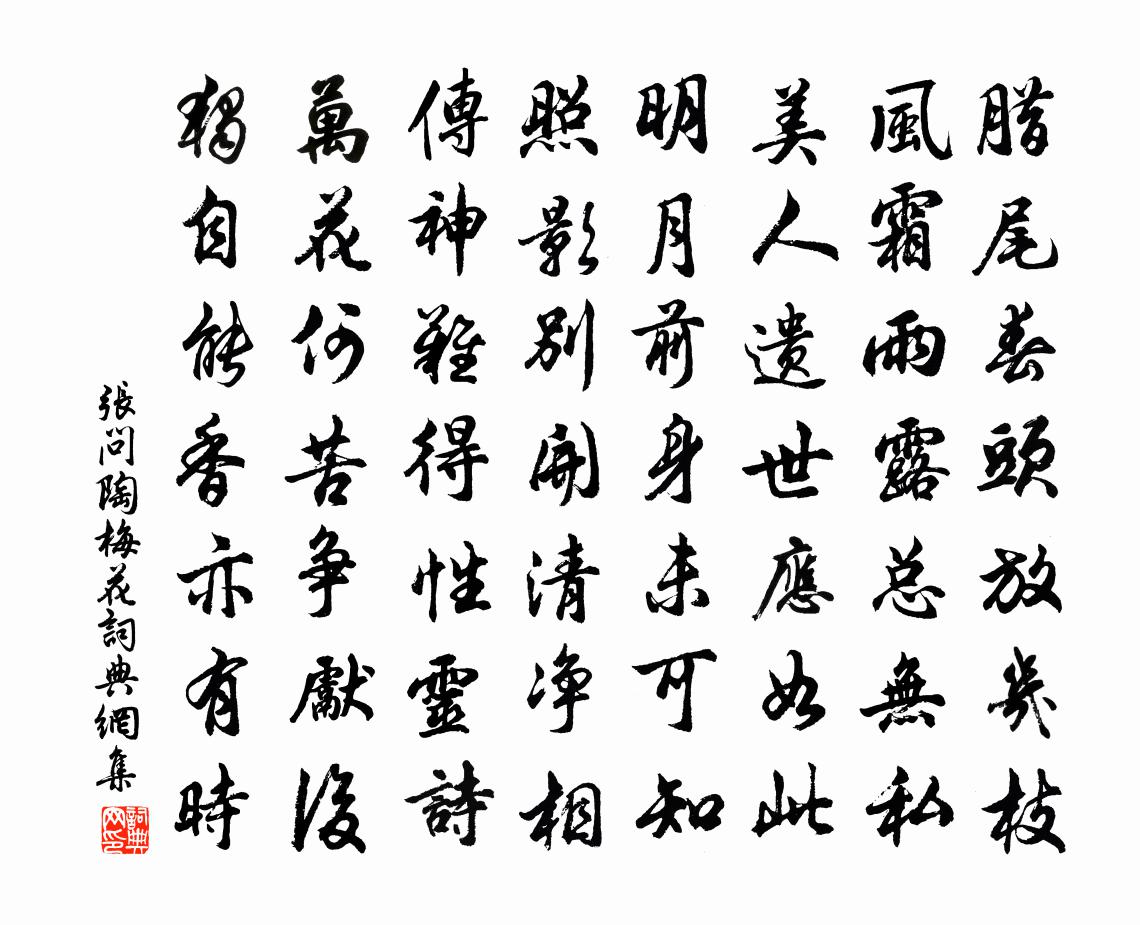 腊尾春頭放幾枝
風霜雨露总無私
美人遗世應如此
明月前身未可知
照影別開清净相
傳神難得性靈詩
萬花何苦争獻後
獨自能香亦有時
張问陶梅花詞典網集
詞典网印